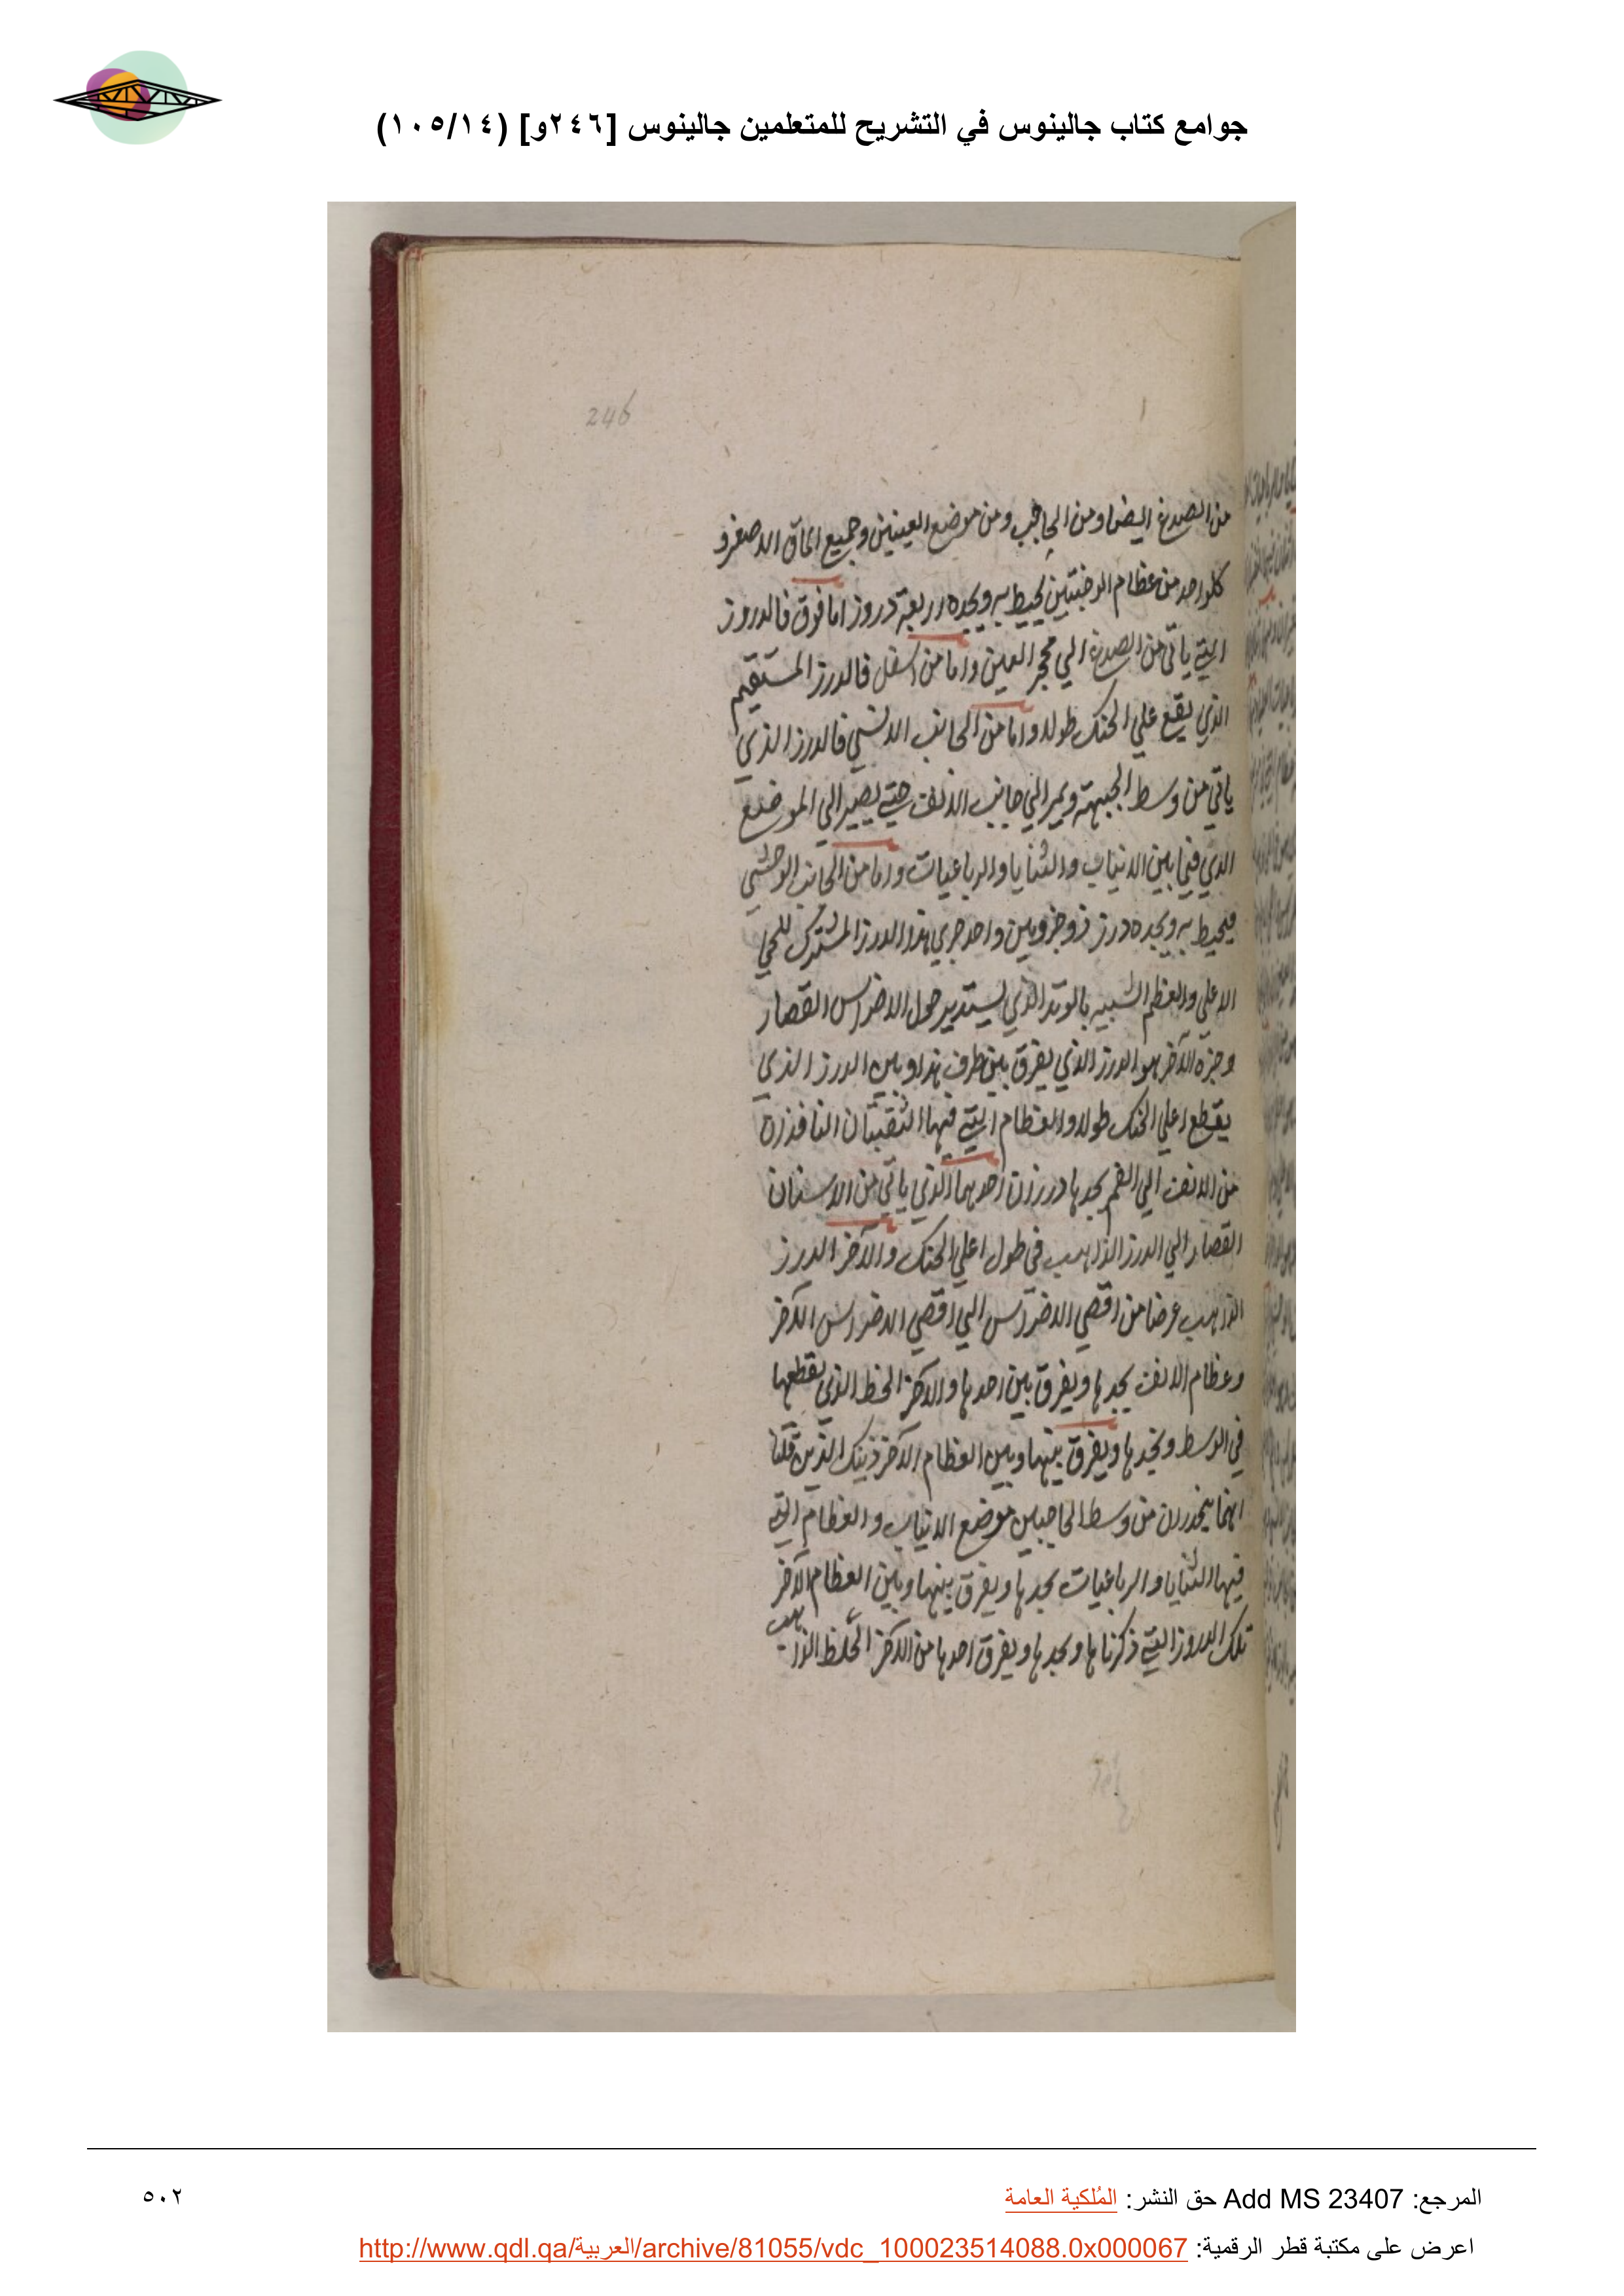 جوامع كتاب جالينوس في التشريح للمتعلمين جالينوس [٢٤٦و] (١٠٥/١٤)
246
من الصدغ ايضا ومن الحاجب ومن موضع العينين وجميع الماق الاصغر و
كلواحد من عظام الوجنتين يحيط به ويحده اربعة دروز اما فوق فالدروز
التي ياتي من الصدغ الي محجر العين واما من اسفل فالدرز المستقيم
الذي يقع علي الحنك طولا واما من الجانب الانسي فالدرز الذي
ياتي من وسط الجبهة ويمر الي جانب الانف حتي يصير الي الموضع
الذي فيما بين الانياب والثنايا والرباعيات واما من الجانب الوحشي
فيحيط به ويحده درز ذو جزوين واحد جزي هذا الدرز المشترك للحي
الاعلي والعظم الشبيه بالوتد الذي يستدير حول الاضراس القصار
وجزه الآخر هو الدرز الذي يفرق بين طرف هذا وبين الدرز الذي
يقطع اعلي الحنك طولا والعظام التي فيها الثقبتان النافذة
من الانف الي الفم يحدها درزان احدهما الذي ياتي من الاسنان
القصار الي الدرز الذاهب في طول اعلي الحنك والآخر الدرز
الذاهب عرضا من اقصي الاضراس الي اقصي الاضراس الآخر
وعظام الانف يحدها ويفرق بين احدها والآخر الخط الذي يقطعها
في الوسط ويحدها ويفرق بينها وبين العظام الآخر ذينك الذين قلنا
انهما ينحدران من وسط الحاجبين موضع الانياب والعظام التي
فيها الثنايا والرباعيات يحدها ويفرق بينها وبين العظام الآخر
تلك الدروز التي ذكرناها ويحدها ويفرق احدها من الآخر الخط الذاهب
المرجع: Add MS 23407 حق النشر: المُلكية العامة
٥٠٢
اعرض على مكتبة قطر الرقمية: http://www.qdl.qa/العربية/archive/81055/vdc_100023514088.0x000067